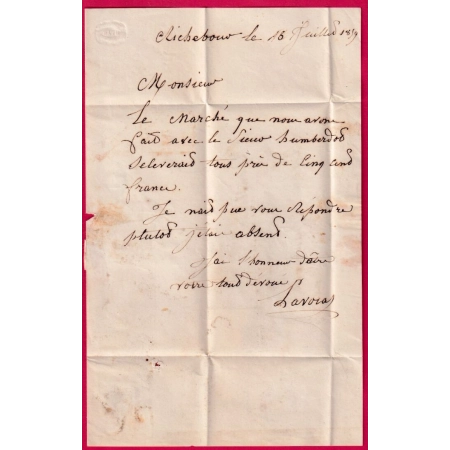 Richebour le 18 Juillet 1859
Monsieur
Le Marché que nous avons
fait avec le Sieur humberdot
seleverait tous près de Cinq cent
francs.
Je nait pas vous Repondre
plutot j'etais absent.
J'ai l'honneur d'aitre
votre tout dévoué
Lavoias